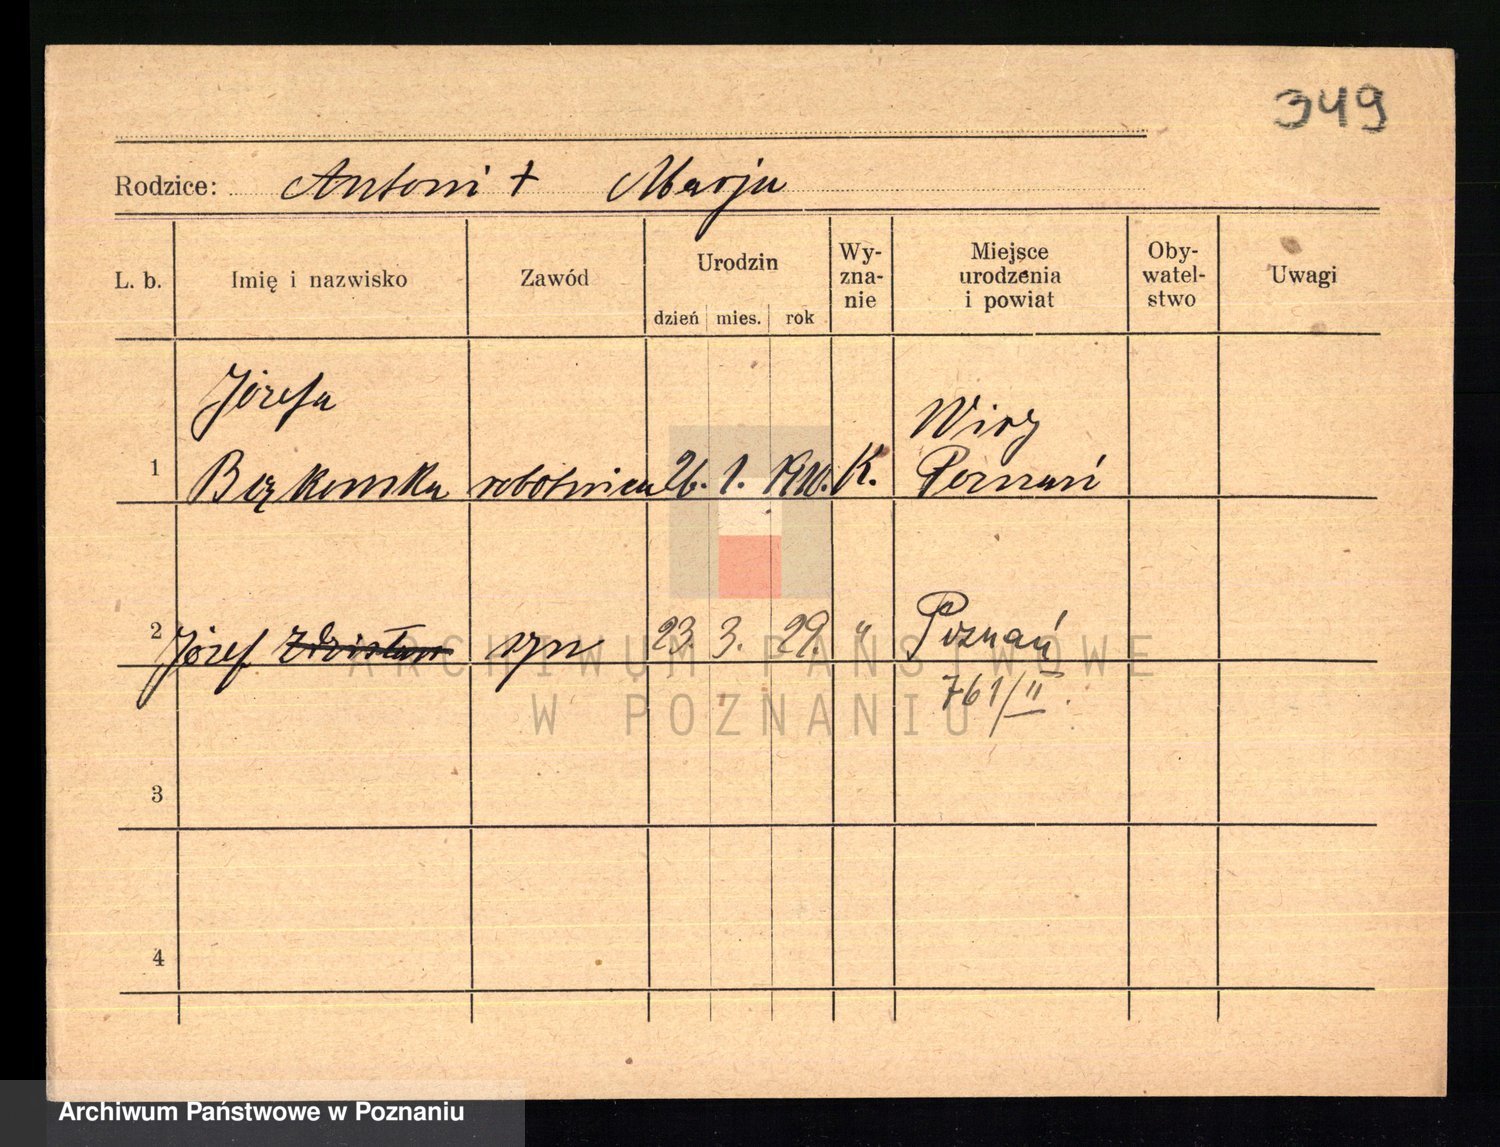 349
Rodzice: Antoni † Marja
L. b. Imię i nazwisko Zawód Urodzin Wy-zna-nie Miejsce urodzenia i powiat Oby-watel-stwo Uwagi
dzień mies. rok
Józefa
Wiry
1 Bąkowska robotnica 26. 1. 1910. K. Poznań
2 Józef Zdzisław syn 23. 3. 29. " Poznań
761/II.
3
4
ARCHIWUM PAŃSTWOWE
W POZNANIU
Archiwum Państwowe w Poznaniu